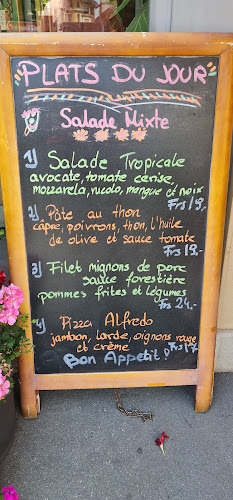 PLATS DU JOUR
Salade Mixte
1) Salade Tropicale
avocate, tomate cerise,
mozzarela, rucolo, mangue et noix
Frs 19.-
2) Pâte au thon
capre, poivrons, thon, l'huile
de olive et sauce tomate
Frs 19.-
3) Filet mignons de porc
sauce forestière
pommes frites et légumes
Frs 24.-
4) Pizza Alfredo
jambon, larde, oignons rouge
et crème
Bon Appetit